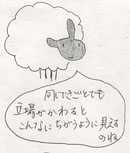 同じできごとでも
立場がかわると
こんなにちがうように見える
のね